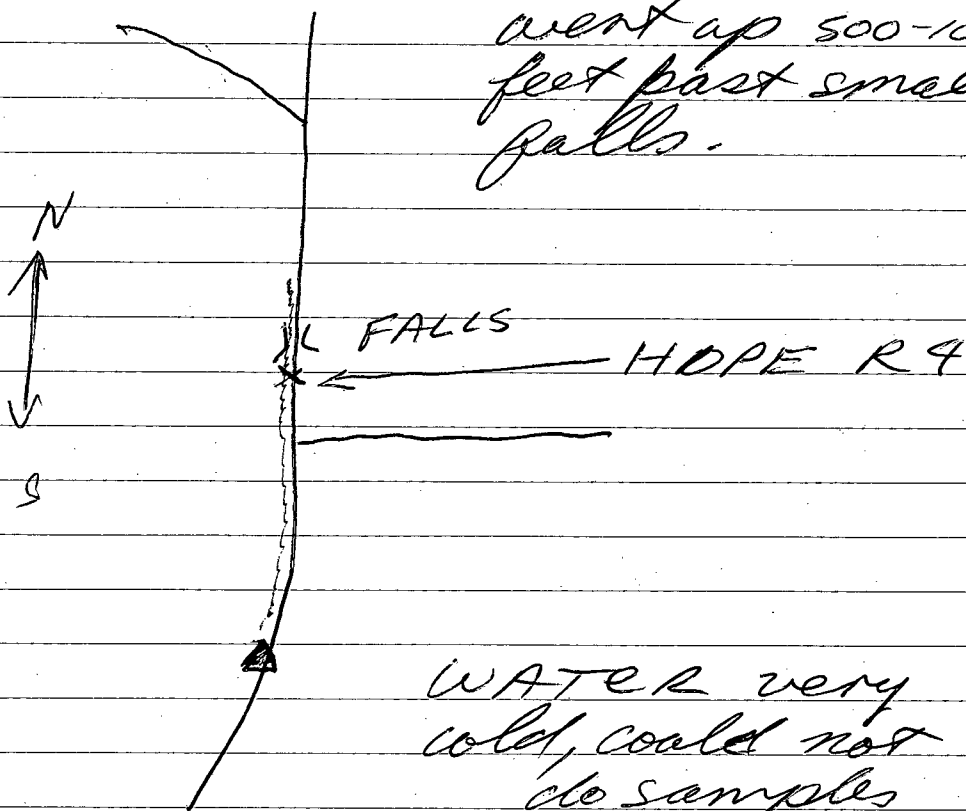 went up 500-10
feet past smal
falls.
N
FALLS
HOPE R4
S
WATER very
cold, could not
do samples